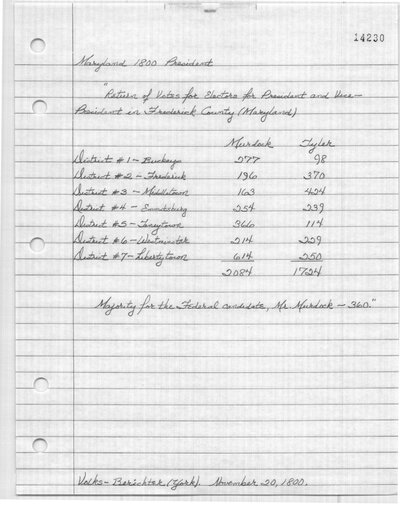 14230
Maryland 1800 President
"Return of Votes for Electors for President and Vice-
President in Frederick County (Maryland)
Murdock Tyler
District #1 - 277 98
District #2 - Frederick 196 370
District #3 - Middletown 163 424
District #4 - Emmitsburg 254 239
District #5 - Taneytown 366 114
District #6 - Westminster 214 229
District #7 - Libertytown 614 250
2084 1724
Majority for the Federal candidate, Mr. Murdock - 360."
Volks-Berichter (York). November 20, 1800.